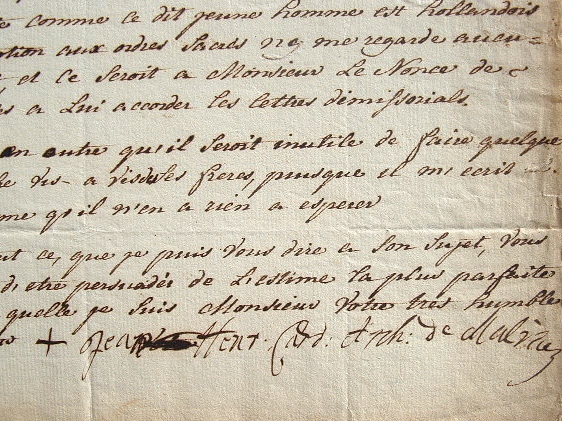 comme ce dit jeune homme est hollandois
ption aux ordres Sacrés ne me regarde aucu=
et ce Seroit a Monsieur Le Nonce de
a Lui accorder les lettres démissorials.
en outre qu'il Seroit inutile de faire quelque
vis-a les freres, puisque il m'écrit
me qu'il n'en a rien a esperer
ut ce, que je puis Vous dire a Son Sujet, Vous
d'etre persuadés de L'estime la plus parfaite
quelle je Suis Monsieur Votre très humble
+ Jean Henr. Card. Arch: de Malines